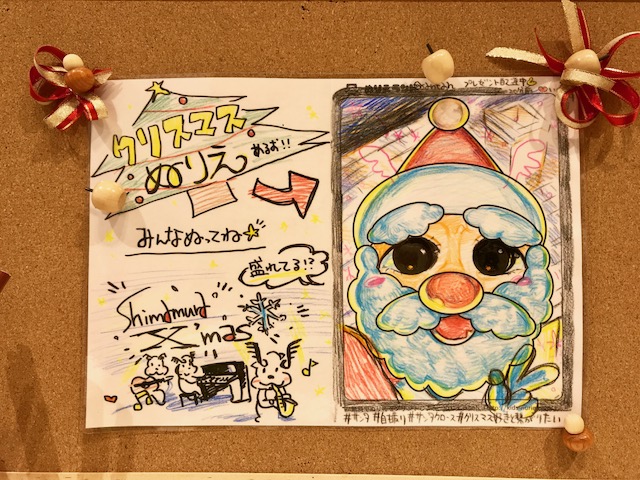 クリスマス
ぬりえ あるお!!
みんなぬってね
盛れてる!?
Shimamura
X'mas
プレゼント配達中
#サンタ #自撮り #サンタクロース #クリスマス好きと繋がりたい